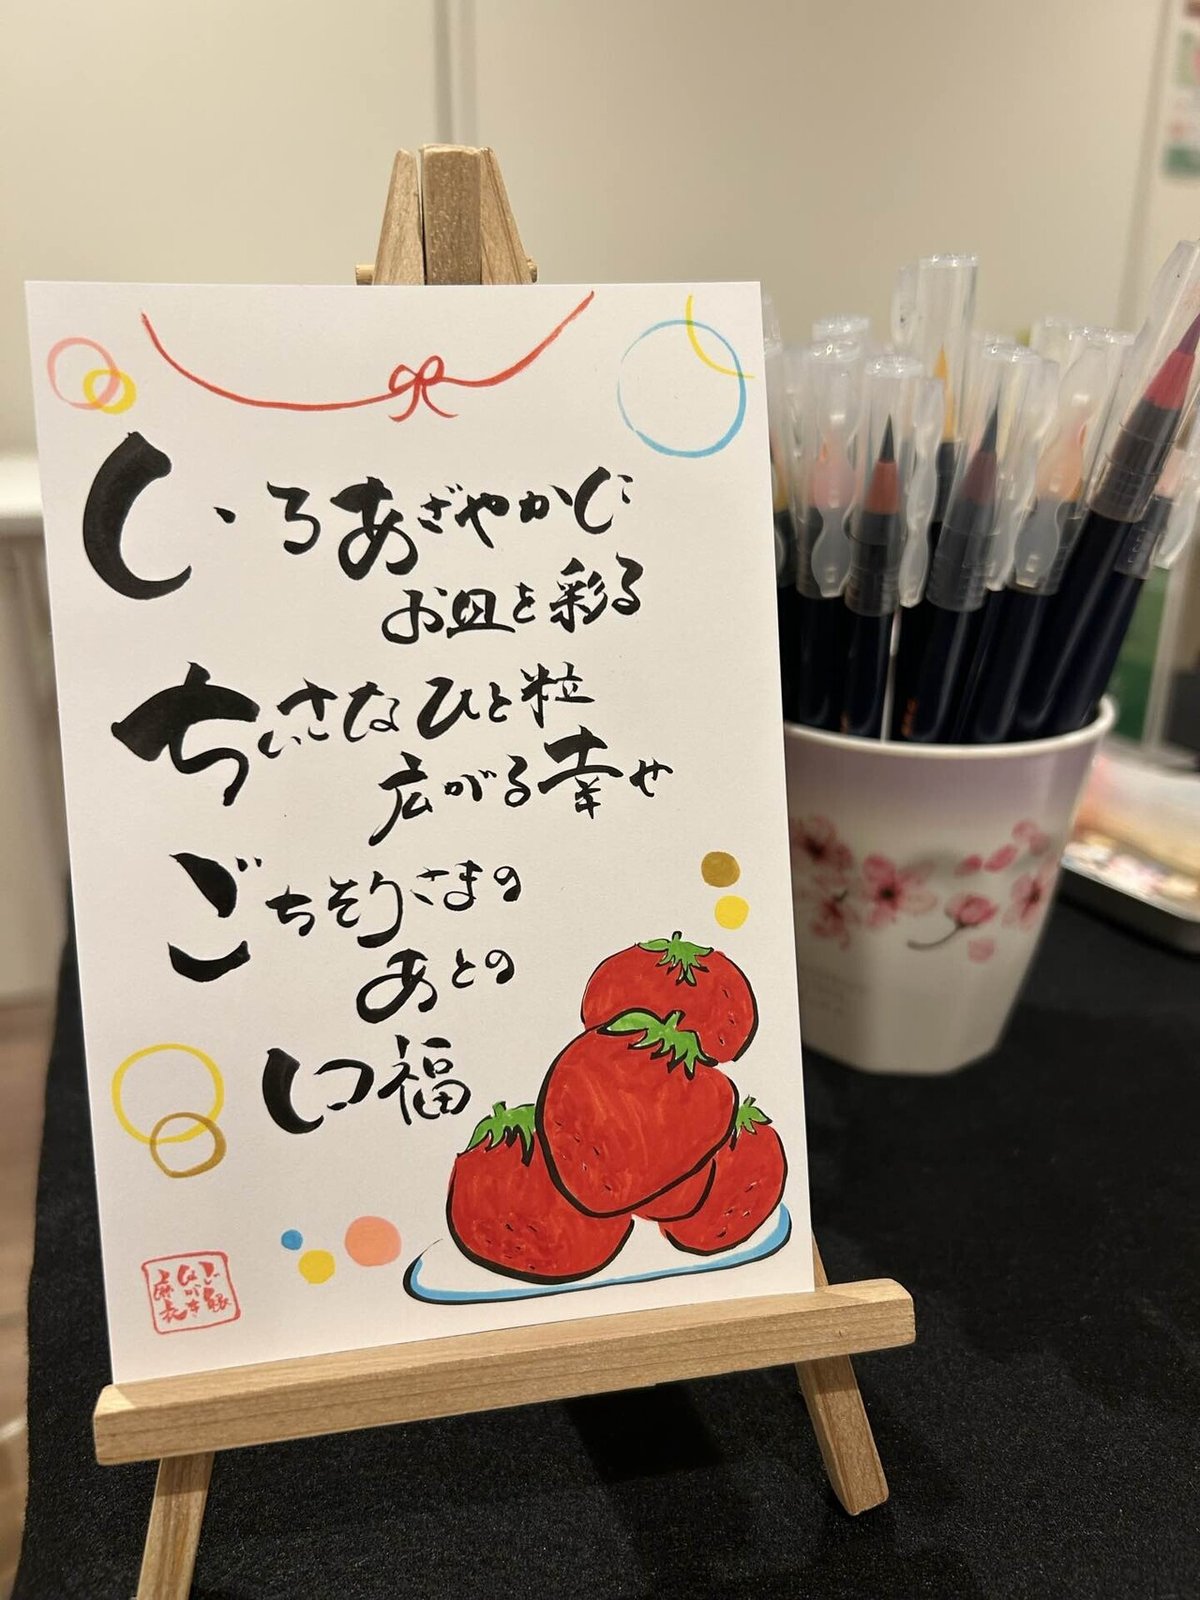 いろあざやかに
お皿を彩る
ちいさなひと粒
広がる幸せ
ごちそうさまの
あとの
口福